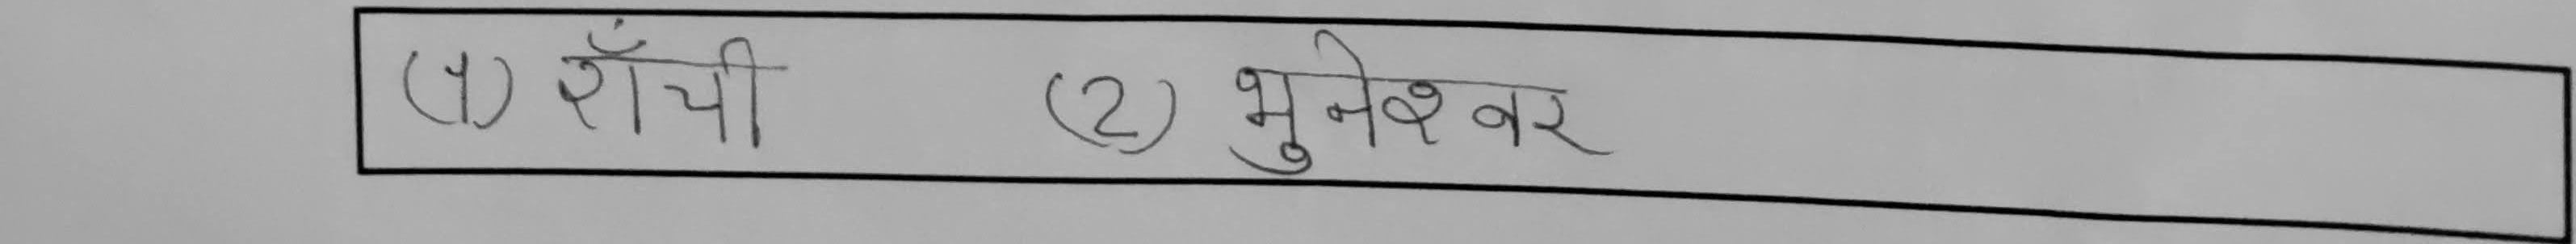 (1) राँची (2) भुनेश्वर